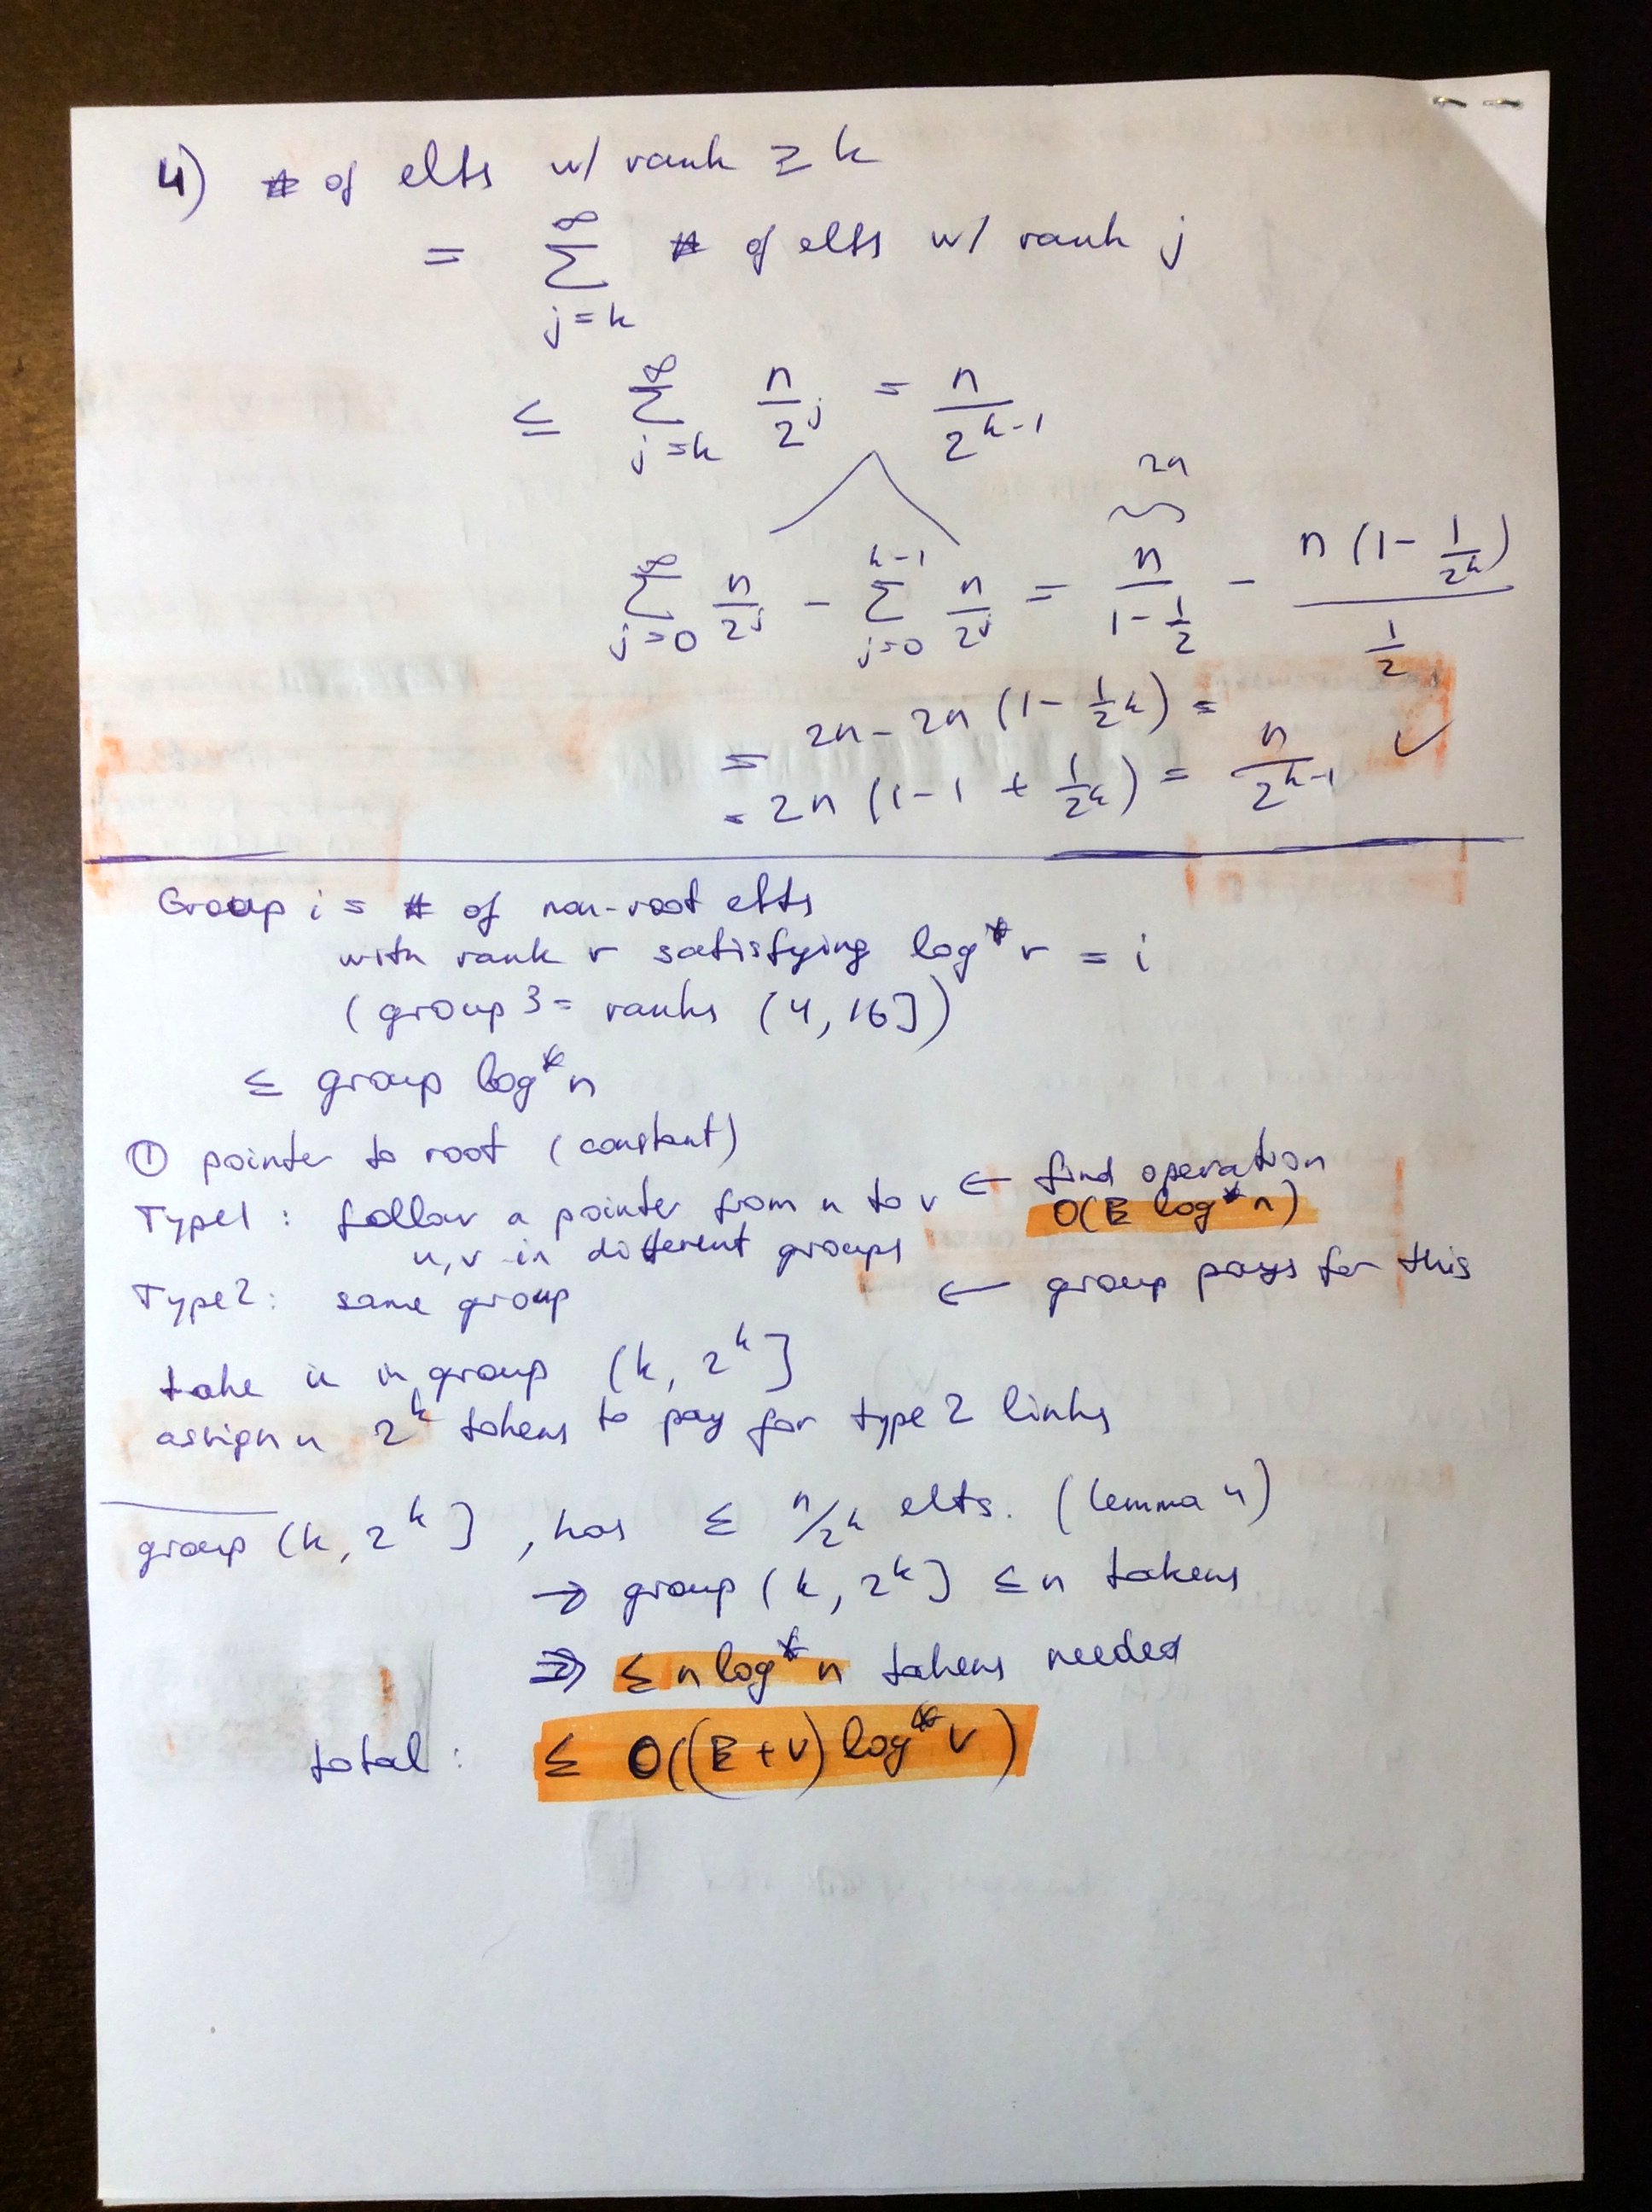 4) # of elts w/ rank ≥ k
= ∑_{j=k}^{∞} # of elts w/ rank j
≤ ∑_{j=k}^{∞} n/2^j = n/2^{k-1}
2n
∑_{j=0}^{∞} n/2^j - ∑_{j=0}^{k-1} n/2^j = n/(1-1/2) - n(1-1/2^k)/(1/2)
= 2n - 2n (1- 1/2^k) =
= 2n (1-1 + 1/2^k) = n/2^{k-1} ✓
Group i = # of non-root elts
with rank r satisfying log* r = i
(group 3 = ranks (4, 16])
≤ group log* n
① pointer to root (constant)
Type1: follow a pointer from u to v ← find operation
O(E log* n)
u,v in different groups
Type2: same group ← group pays for this
take u in group (k, 2^k]
assign u 2^k tokens to pay for type 2 links
group (k, 2^k], has ≤ n/2^k elts. (lemma 4)
→ group (k, 2^k] ≤ n tokens
⇒ ≤ n log* n tokens needed
total: ≤ O((E+V) log* V)